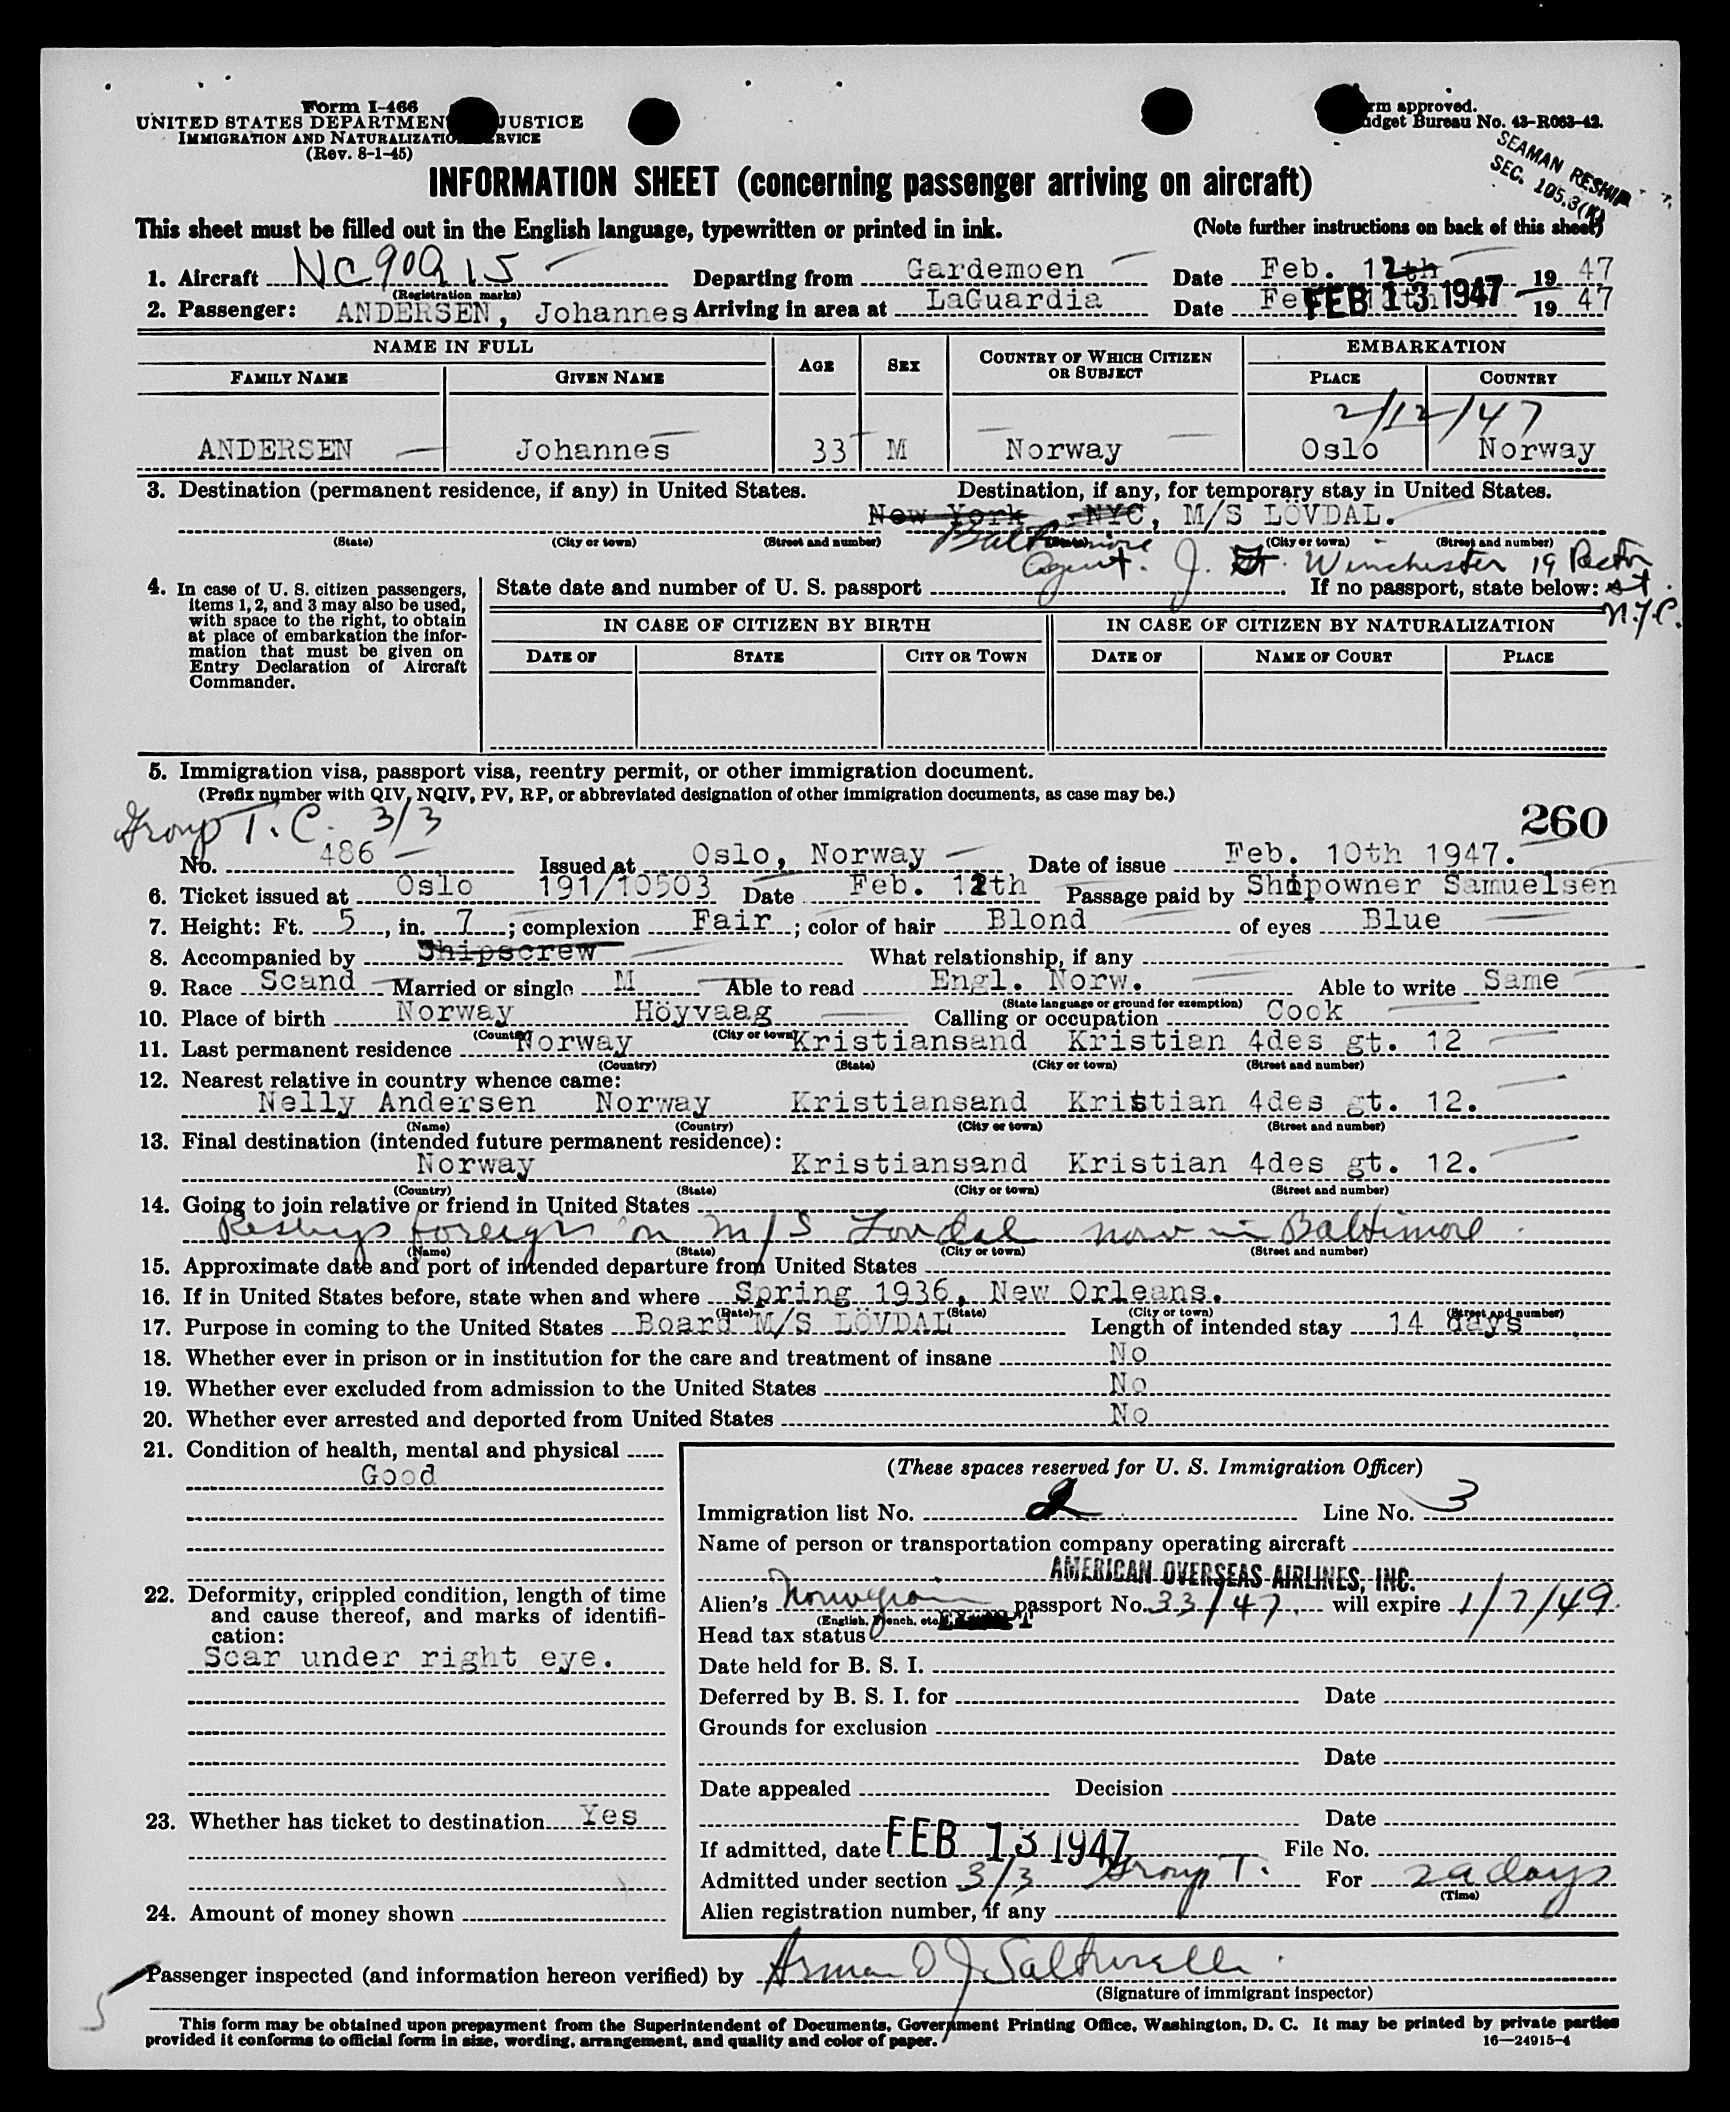 Form I-466
UNITED STATES DEPARTMEN JUSTICE
IMMIGRATION AND NATURALIZATIO RVICE
(Rev. 8-1-45)
rm approved.
udget Bureau No. 43-R063-42.
SEAMAN RESHIP
SEC. 105.3(K)
INFORMATION SHEET (concerning passenger arriving on aircraft)
This sheet must be filled out in the English language, typewritten or printed in ink. (Note further instructions on back of this sheet)
1. Aircraft NC90915 Departing from Gardemoen Date Feb. 12th 19 47
(Registration marks)
2. Passenger: ANDERSEN, Johannes Arriving in area at LaGuardia Date FEB 13 1947 19 47
NAME IN FULL AGE SEX COUNTRY OF WHICH CITIZEN OR SUBJECT EMBARKATION
FAMILY NAME GIVEN NAME PLACE COUNTRY
2/12/47
ANDERSEN Johannes 33 M Norway Oslo Norway
3. Destination (permanent residence, if any) in United States. Destination, if any, for temporary stay in United States.
New York, NYC, M/S LÖVDAL.
(State) (City or town) (Street and number) (State) (City or town) (Street and number)
Baltimore
Agent. J. Winchester 19 Rector St. N.Y.C.
4. In case of U. S. citizen passengers, items 1, 2, and 3 may also be used, with space to the right, to obtain at place of embarkation the information that must be given on Entry Declaration of Aircraft Commander.
State date and number of U. S. passport If no passport, state below:
IN CASE OF CITIZEN BY BIRTH IN CASE OF CITIZEN BY NATURALIZATION
DATE OF STATE CITY OR TOWN DATE OF NAME OF COURT PLACE
5. Immigration visa, passport visa, reentry permit, or other immigration document.
(Prefix number with QIV, NQIV, PV, RP, or abbreviated designation of other immigration documents, as case may be.)
Group T. C. 3/3
260
No. 486 Issued at Oslo, Norway Date of issue Feb. 10th 1947.
6. Ticket issued at Oslo 191/10503 Date Feb. 12th Passage paid by Shipowner Samuelsen
7. Height: Ft. 5, in. 7; complexion Fair; color of hair Blond of eyes Blue
8. Accompanied by Shipscrew What relationship, if any
9. Race Scand Married or single M Able to read Engl. Norw. Able to write Same
(State language or ground for exemption)
10. Place of birth Norway Höyvaag Calling or occupation Cook
(Country) (City or town)
11. Last permanent residence Norway Kristiansand Kristian 4des gt. 12
(Country) (State) (City or town) (Street and number)
12. Nearest relative in country whence came:
Nelly Andersen Norway Kristiansand Kristian 4des gt. 12.
(Name) (Country) (City or town) (Street and number)
13. Final destination (intended future permanent residence):
Norway Kristiansand Kristian 4des gt. 12.
(Country) (State) (City or town) (Street and number)
14. Going to join relative or friend in United States
Reships foreign on M/S Lovdal now in Baltimore
(Name) (State) (City or town) (Street and number)
15. Approximate date and port of intended departure from United States
16. If in United States before, state when and where Spring 1936, New Orleans.
(Date) (State) (City or town) (Street and number)
17. Purpose in coming to the United States Board M/S LÖVDAL Length of intended stay 14 days
18. Whether ever in prison or in institution for the care and treatment of insane No
19. Whether ever excluded from admission to the United States No
20. Whether ever arrested and deported from United States No
21. Condition of health, mental and physical
Good
22. Deformity, crippled condition, length of time and cause thereof, and marks of identification:
Scar under right eye.
23. Whether has ticket to destination Yes
24. Amount of money shown
(These spaces reserved for U. S. Immigration Officer)
Immigration list No. 2 Line No. 3
Name of person or transportation company operating aircraft
AMERICAN OVERSEAS AIRLINES, INC.
Alien's Norwegian passport No. 33/47 will expire 1/7/49.
(English, French, etc.)
Head tax status
Date held for B. S. I.
Deferred by B. S. I. for Date
Grounds for exclusion
Date
Date appealed Decision
Date
If admitted, date FEB 13 1947 File No.
Admitted under section 3/3 Group T. For 29 days
(Time)
Alien registration number, if any
Passenger inspected (and information hereon verified) by
(Signature of immigrant inspector)
This form may be obtained upon prepayment from the Superintendent of Documents, Government Printing Office, Washington, D. C. It may be printed by private parties
provided it conforms to official form in size, wording, arrangement, and quality and color of paper.
16—24915-4